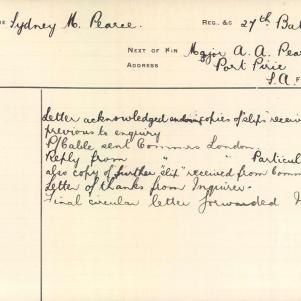 Sydney M. Pearce.
REG. &C 27th Bat
NEXT OF KIN Major A. A. Pear
ADDRESS Port Pirie
S.A.
Letter acknowledged copies of "slips" receiv
previous to enquiry
P/Cable sent Commrs London
Reply from " " Particul
also copy of further "slip" received from Comm
Letter of thanks from Inquirer.
Final circular letter forwarded